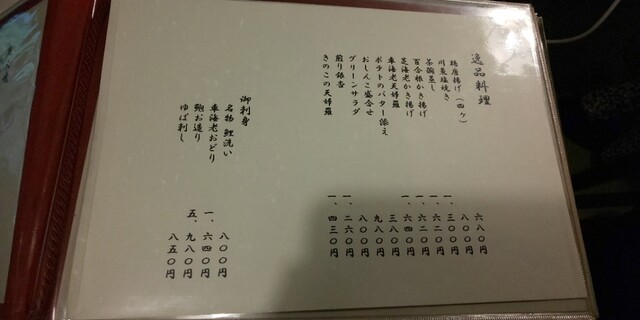 逸品料理
鶏唐揚げ（四ケ） 六八〇円
塩焼き 八〇〇円
茶碗蒸し 一、三〇〇円
百合根かき揚げ 一、六二〇円
芝海老かき揚げ 一、六二〇円
車海老天婦羅 一、六四〇円
ポテトのバター添え 三八〇円
おしんこ盛合せ 九八〇円
グリーンサラダ 八〇〇円
煎り銀杏 一、二六〇円
きのこの天婦羅 一、四三〇円
御刺身
名物 鯉洗い 八〇〇円
車海老おどり 一、六四〇円
鮑お造り 五、九八〇円
ゆば刺し 八五〇円